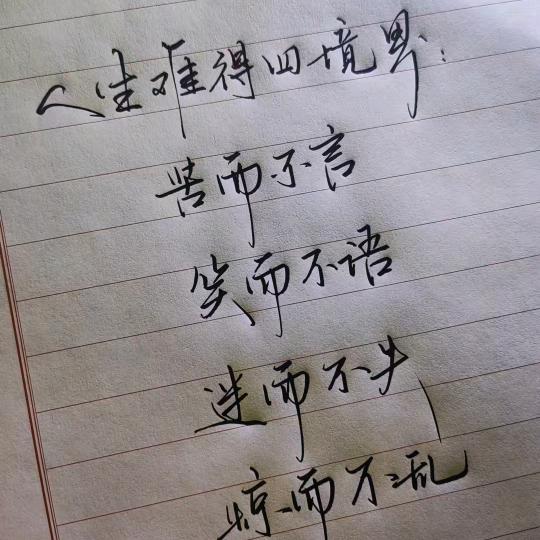 人生难得四境界：
苦而不言
笑而不语
迷而不失
惊而不乱